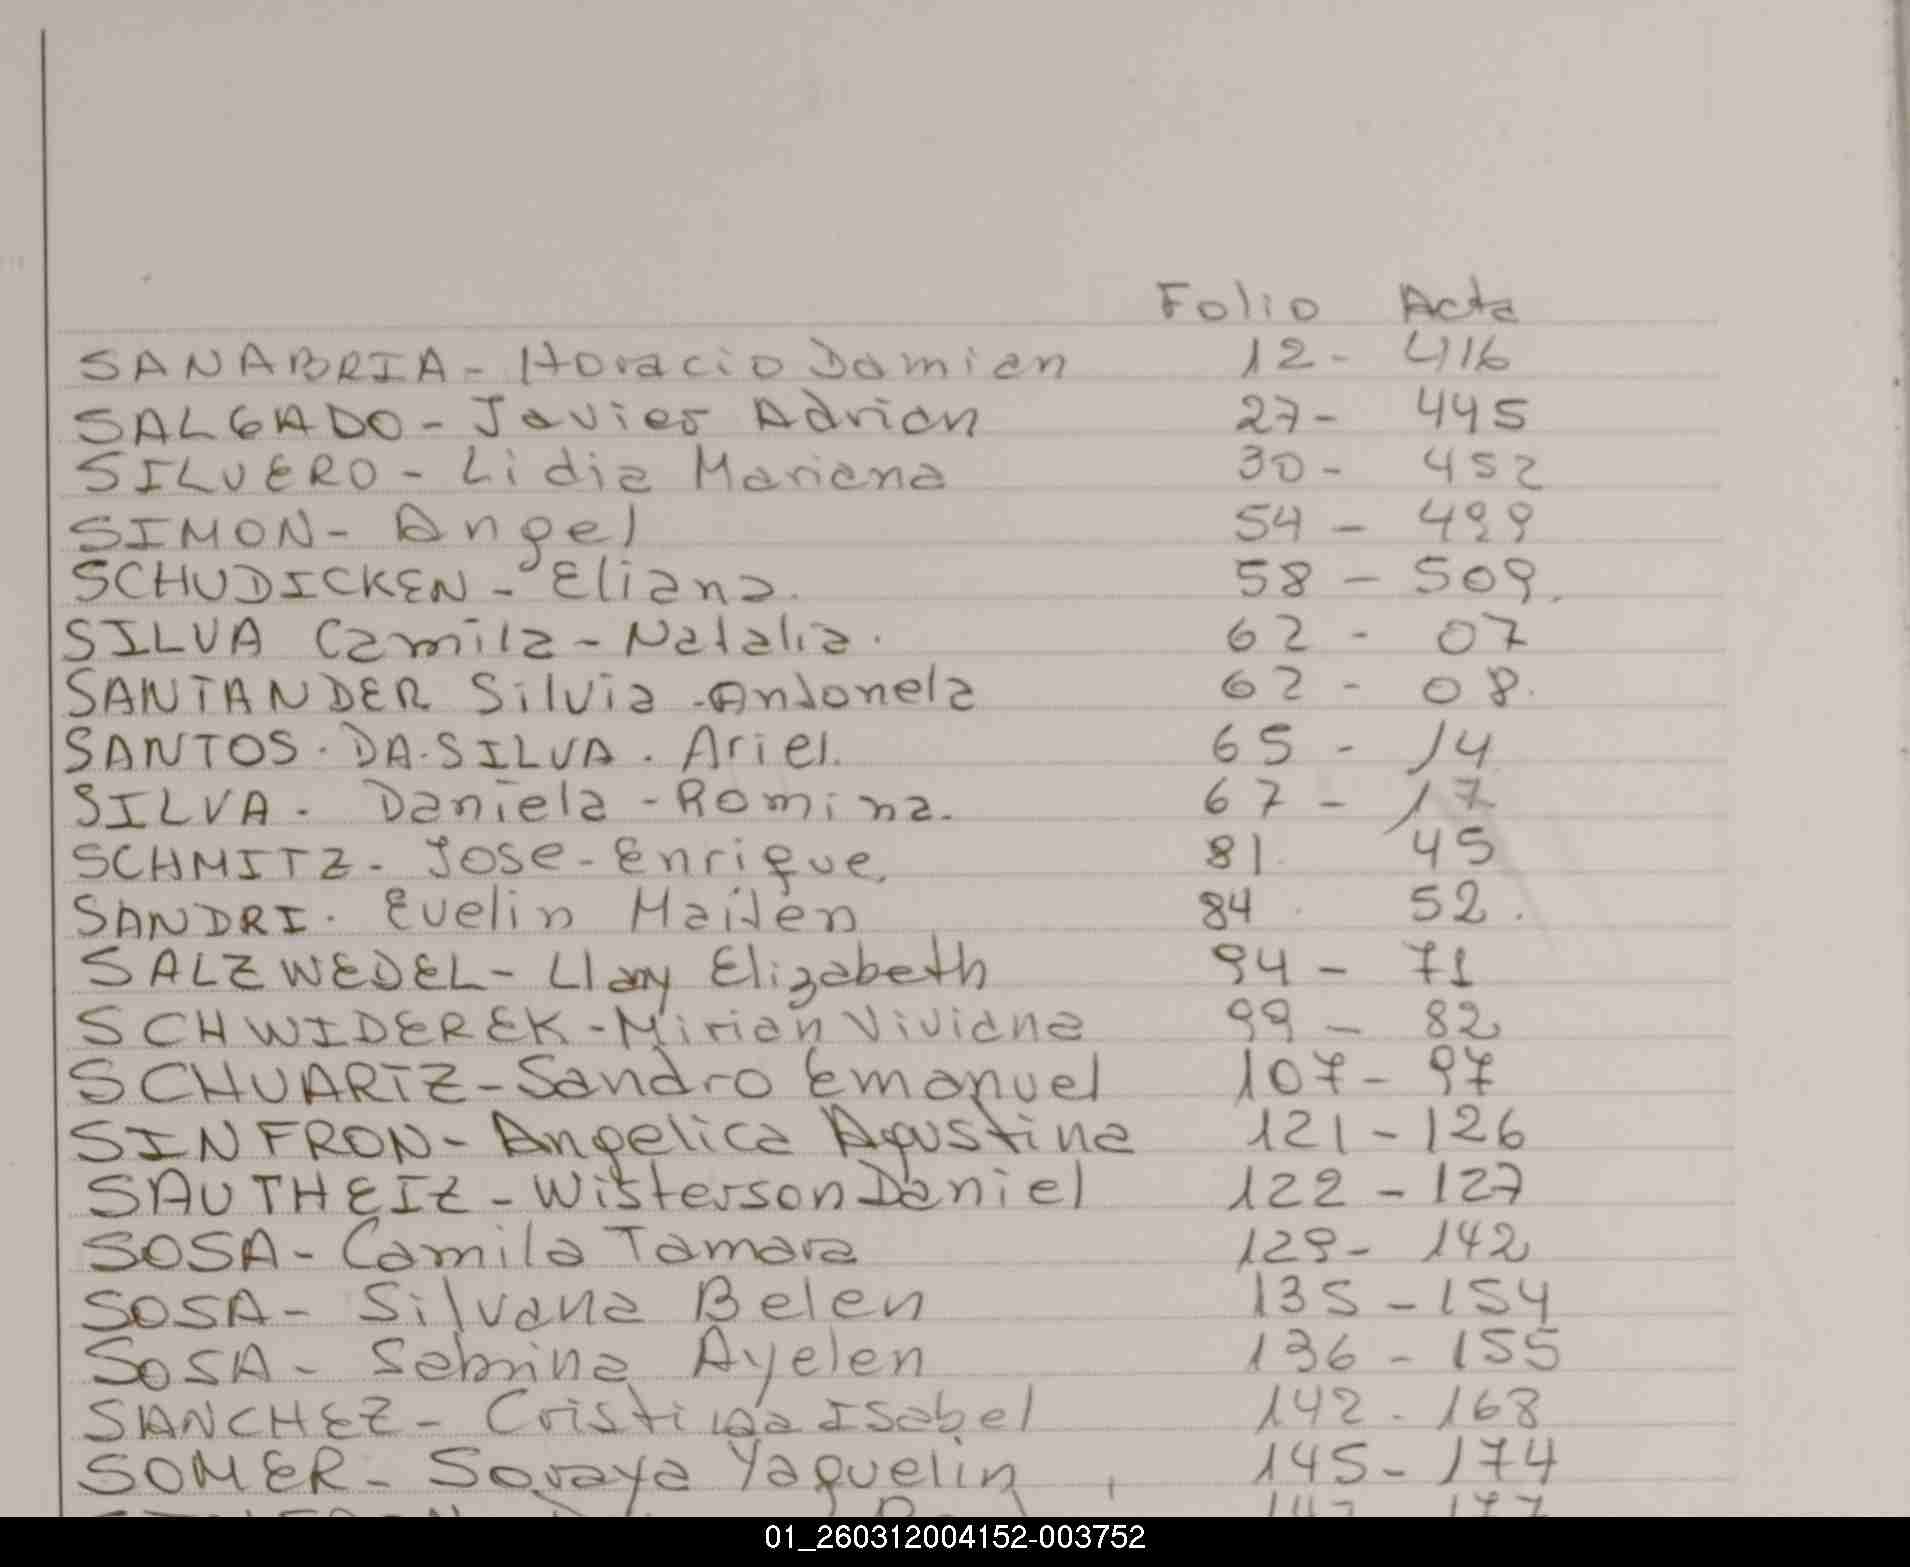 Folio Acta
SANABRIA - Horacio Damian 12 - 416
SALGADO - Javier Adrian 27 - 445
SILVERO - Lidia Mariana 30 - 452
SIMON - Angel 54 - 499
SCHUDICKEN - Eliana. 58 - 509.
SILVA Camila - Natalia. 62 - 07
SANTANDER Silvia - Antonela 62 - 08.
SANTOS. DA. SILVA. Ariel. 65 - 14
SILVA. Daniela - Romina. 67 - 17
SCHMITZ - Jose - Enrique. 81. 45
SANDRI. Evelin Mailen 84. 52.
SALZWEDEL - Llany Elizabeth 94 - 71
SCHWIDEREK - Mirian Viviana 99 - 82
SCHUARTZ - Sandro Emanuel 107 - 97
SINFRON - Angelica Agustina 121 - 126
SAUTHEIZ - Wisterson Daniel 122 - 127
SOSA - Camila Tamara 129 - 142
SOSA - Silvana Belen 135 - 154
SOSA - Sabrina Ayelen 136 - 155
SANCHEZ - Cristina Isabel 142 - 168
SOMER - Soraya Yaquelin 145 - 174
01_260312004152-003752